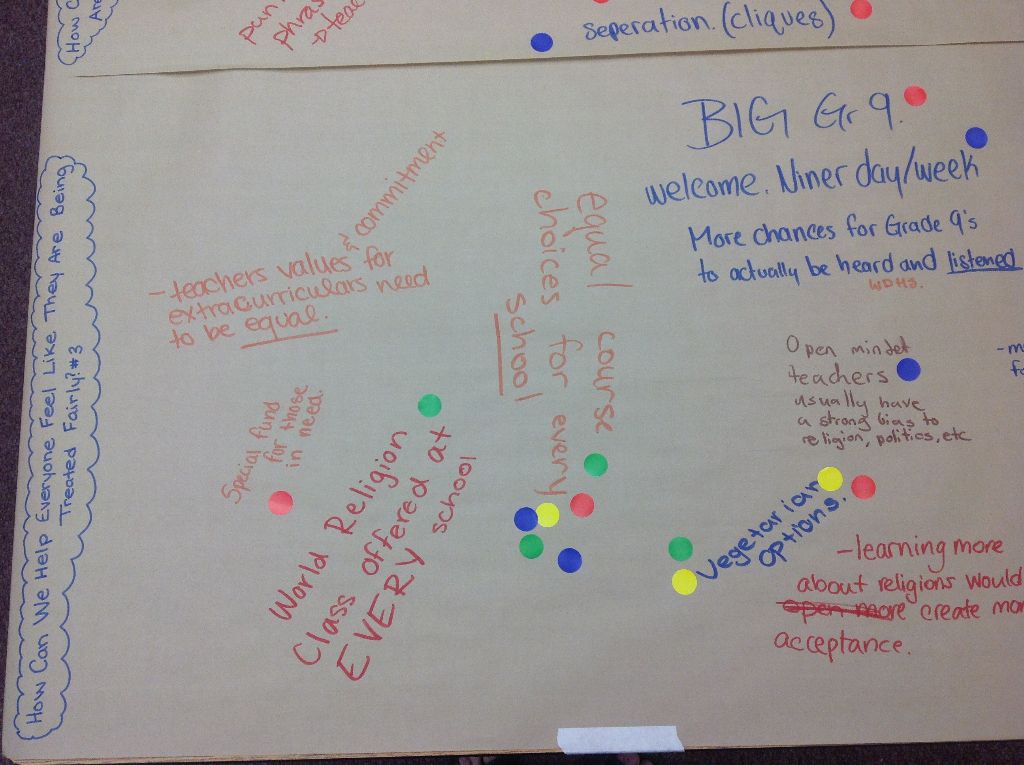 How C
Are
pun
phras
→teac
seperation. (cliques)
How Can We Help Everyone Feel Like They Are Being
Treated Fairly? #3
BIG Gr 9.
welcome. Niner day/week
More chances for Grade 9's
to actually be heard and listened
WDHS.
- teachers values & commitment for
extracurriculars need
to be equal.
equal course
choices for every
school
Open mindet
teachers
usually have
a strong bias to
religion, politics, etc
-m
fo
Special fund
for those
in need.
World Religion
Class offered at
EVERY school
Vegetarian
options.
- learning more
about religions would
open more create mor
acceptance.